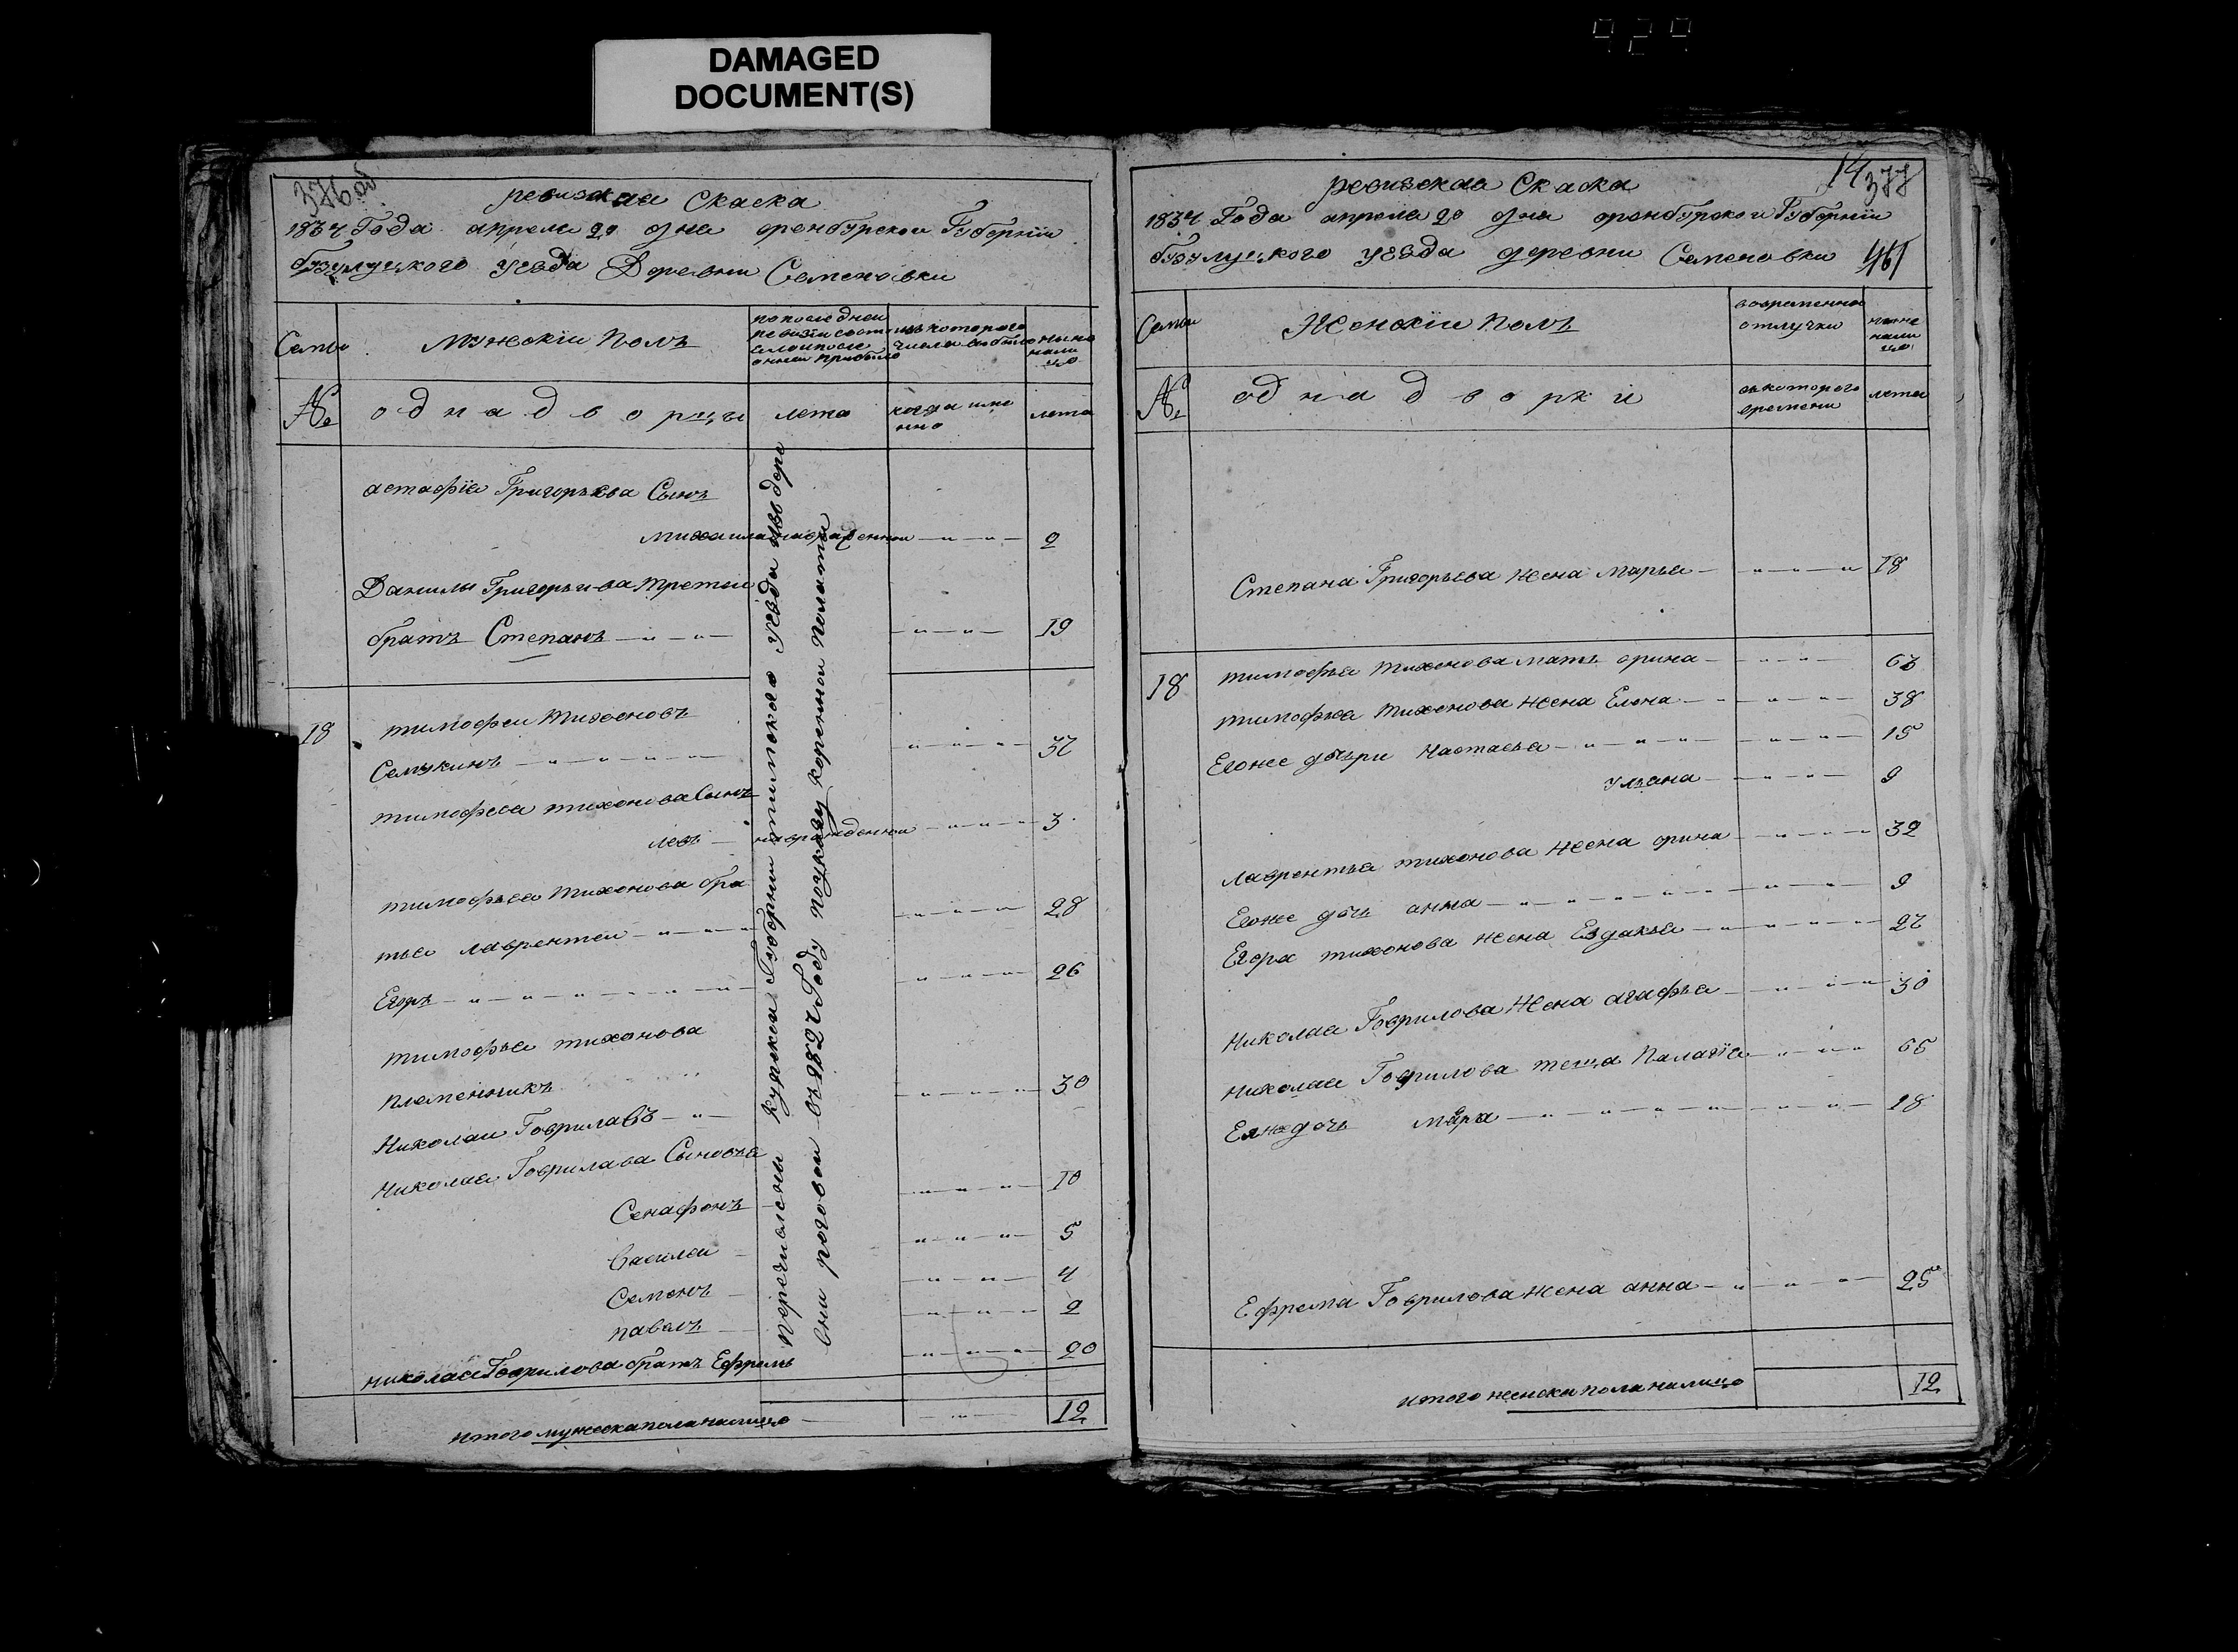 DAMAGED
DOCUMENT(S)
929
376 об
ревизская Скаска
1834 Года апреля 20 дня оренбурскои Губернїи
бузулуцкого уезда Деревни Семеновки
Семьи
Мужескїи Полъ
по последнеи
ревизїи состо
яло и после
оннеи прибыло
изъ которого
числа выбыло
ныне
нали
цо
№
однадворцы
лета
когда име
нно
лета
астафїя Григорьева Сынъ
михаила новраженнои 2
Данилы Григорьива третеи
братъ Степанъ 19
18
тимофеи тихоновъ
Семукинъ 37
тимофева тихонова Сынъ
левъ новражденнои 3
тимофьея тихонова бра
тья лаврентеи 28
Егоръ 26
тимофья тихонова
племенникъ
Николаи Гаврилавъ 30
Николая Гаврилава Сыновья
Сенафонъ 10
Василеи 5
Семенъ 4
павелъ 2
николая Гаврилова братъ Ефремъ 20
итого мужеска пола налицо 12
перечислены Курскои Губернии тимскова уезда изъ дере
вни роговои въ 1827 Году по указу Казеннои Полаты
14 377
ревизская Скаска
1834 Года апреля 20 дня оренбурскои Губернїи
бузулуцкого уезда деревни Семеновки 461
Семьи
Женскїи Полъ
во временно
отлучки
ныне
нали
цо
№
однадворки
съ которого
времени
лета
Степана Григорьева жена марья 18
18
тимофья тихонова мать орина 63
тимофьея тихонова жена Елена 38
Егоже дочери настасья 15
ульяна 9
лаврентья тихонова жена орина 32
Егоже дочь анна 9
Егора тихонова жена Евдакья 27
николая Гаврилова жена агафья 30
николая Гаврилова теща Палагїя 65
Еяже дочь марья 18
Ефрема Гаврилова жена анна 25
итого женска пола налицо 12